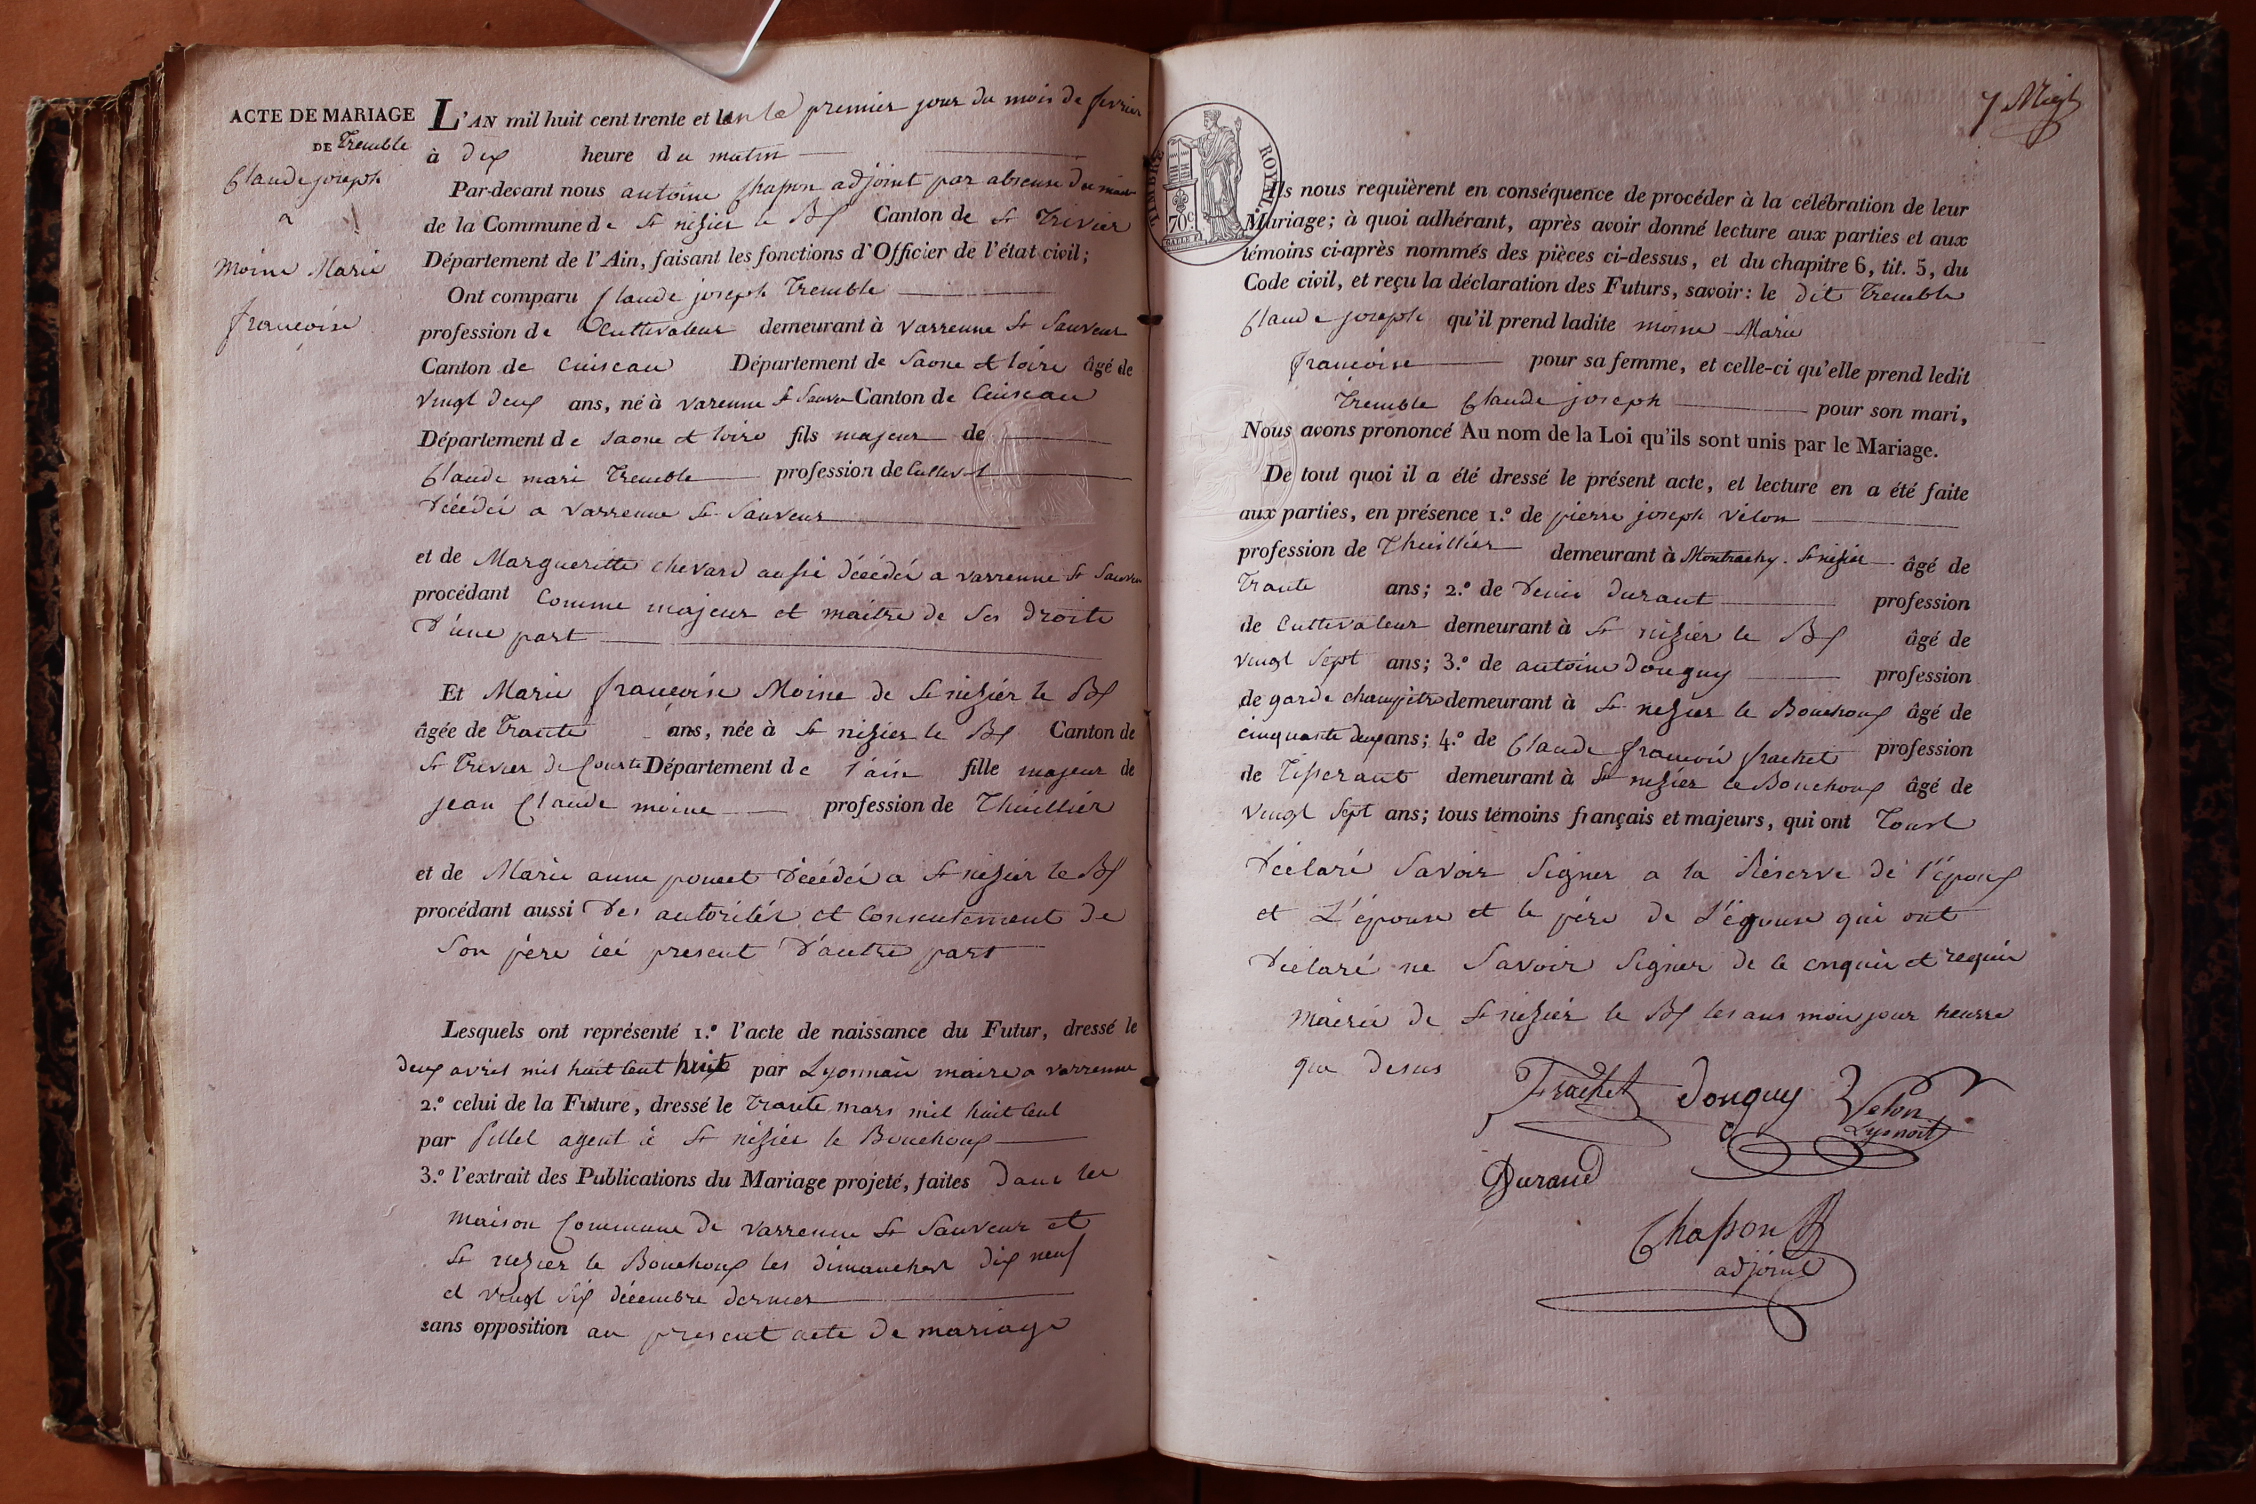 ACTE DE MARIAGE
DE Tremble
Claude joseph
Moine Marie
françoise
L'AN mil huit cent trente et un le premier jour du mois de fevrier
à dix heure du matin
Par-devant nous antoine Chapon adjoint par absence du maire
de la Commune de St nizier le Bx Canton de St Trivier
Département de l'Ain, faisant les fonctions d'Officier de l'état civil;
Ont comparu Claude joseph Tremble
profession de Cultivateur demeurant à Varrenne St Sauveur
Canton de Cuiseau Département de Saone et loire âgé de
vingt deux ans, né à varenne St Sauveur Canton de Cuiseau
Département de Saone et loire fils majeur de
Claude mari Tremble profession de Cultivat
décédé a varrenne St Sauveur
et de Margueritte Chevard aussi décédé a varrenne St Sauveur
procédant Comme majeur et maitre de ses droits
D'une part
Et Marie françoise Moine de St nizier le Bx
âgée de Trante ans, née à St nizier le Bx Canton de
St Trivier de Courte Département de l'ain fille majeur de
jean Claude moine profession de Thuillier
et de Marie anne poncet décédé a St nizier le Bx
procédant aussi des autorités et Consentement de
Son père ici present D'autre part
Lesquels ont représenté 1.º l'acte de naissance du Futur, dressé le
deux avril mil huit Cent huit par Lyonnais maire a varrenne
2.º celui de la Future, dressé le trante mars mil huit Cent
par pillet agent à St nizier le Bouchoux
3.º l'extrait des Publications du Mariage projeté, faites dans les
maison Commune de varrenne St Sauveur et
St nizier le Bouchoux les dimanches dix neuf
et vingt six décembre dernier
sans opposition au present acte de mariage
TIMBRE ROYAL
70 c
7 Migt
Ils nous requièrent en conséquence de procéder à la célébration de leur
Mariage; à quoi adhérant, après avoir donné lecture aux parties et aux
témoins ci-après nommés des pièces ci-dessus, et du chapitre 6, tit. 5, du
Code civil, et reçu la déclaration des Futurs, savoir: le dit Tremble
Claude joseph qu'il prend ladite moine Marie
françoise pour sa femme, et celle-ci qu'elle prend ledit
Tremble Claude joseph pour son mari,
Nous avons prononcé Au nom de la Loi qu'ils sont unis par le Mariage.
De tout quoi il a été dressé le présent acte, et lecture en a été faite
aux parties, en présence 1.º de pierre joseph velon
profession de Thuillier demeurant à Montrachy. St nizier âgé de
Trante ans; 2.º de Denis durant profession
de Cultivateur demeurant à St nizier le Bx âgé de
vingt Sept ans; 3.º de antoine douguy profession
de garde champêtre demeurant à St nizier le Bouchoux âgé de
cinquante deux ans; 4.º de Claude françois frachet profession
de Tisserant demeurant à St nizier le Bouchoux âgé de
vingt Sept ans; tous témoins français et majeurs, qui ont Tous
déclaré Savoir Signer a la Réserve de l'époux
et L'épouse et le père de L'épouse qui ont
déclaré ne Savoir Signer de ce enquis et requis
mairie de St nizier le Bx les ans mois jour heurre
que desus
Frachet Douguy Velon
Lyonnait
Durand
Chapon
adjoint